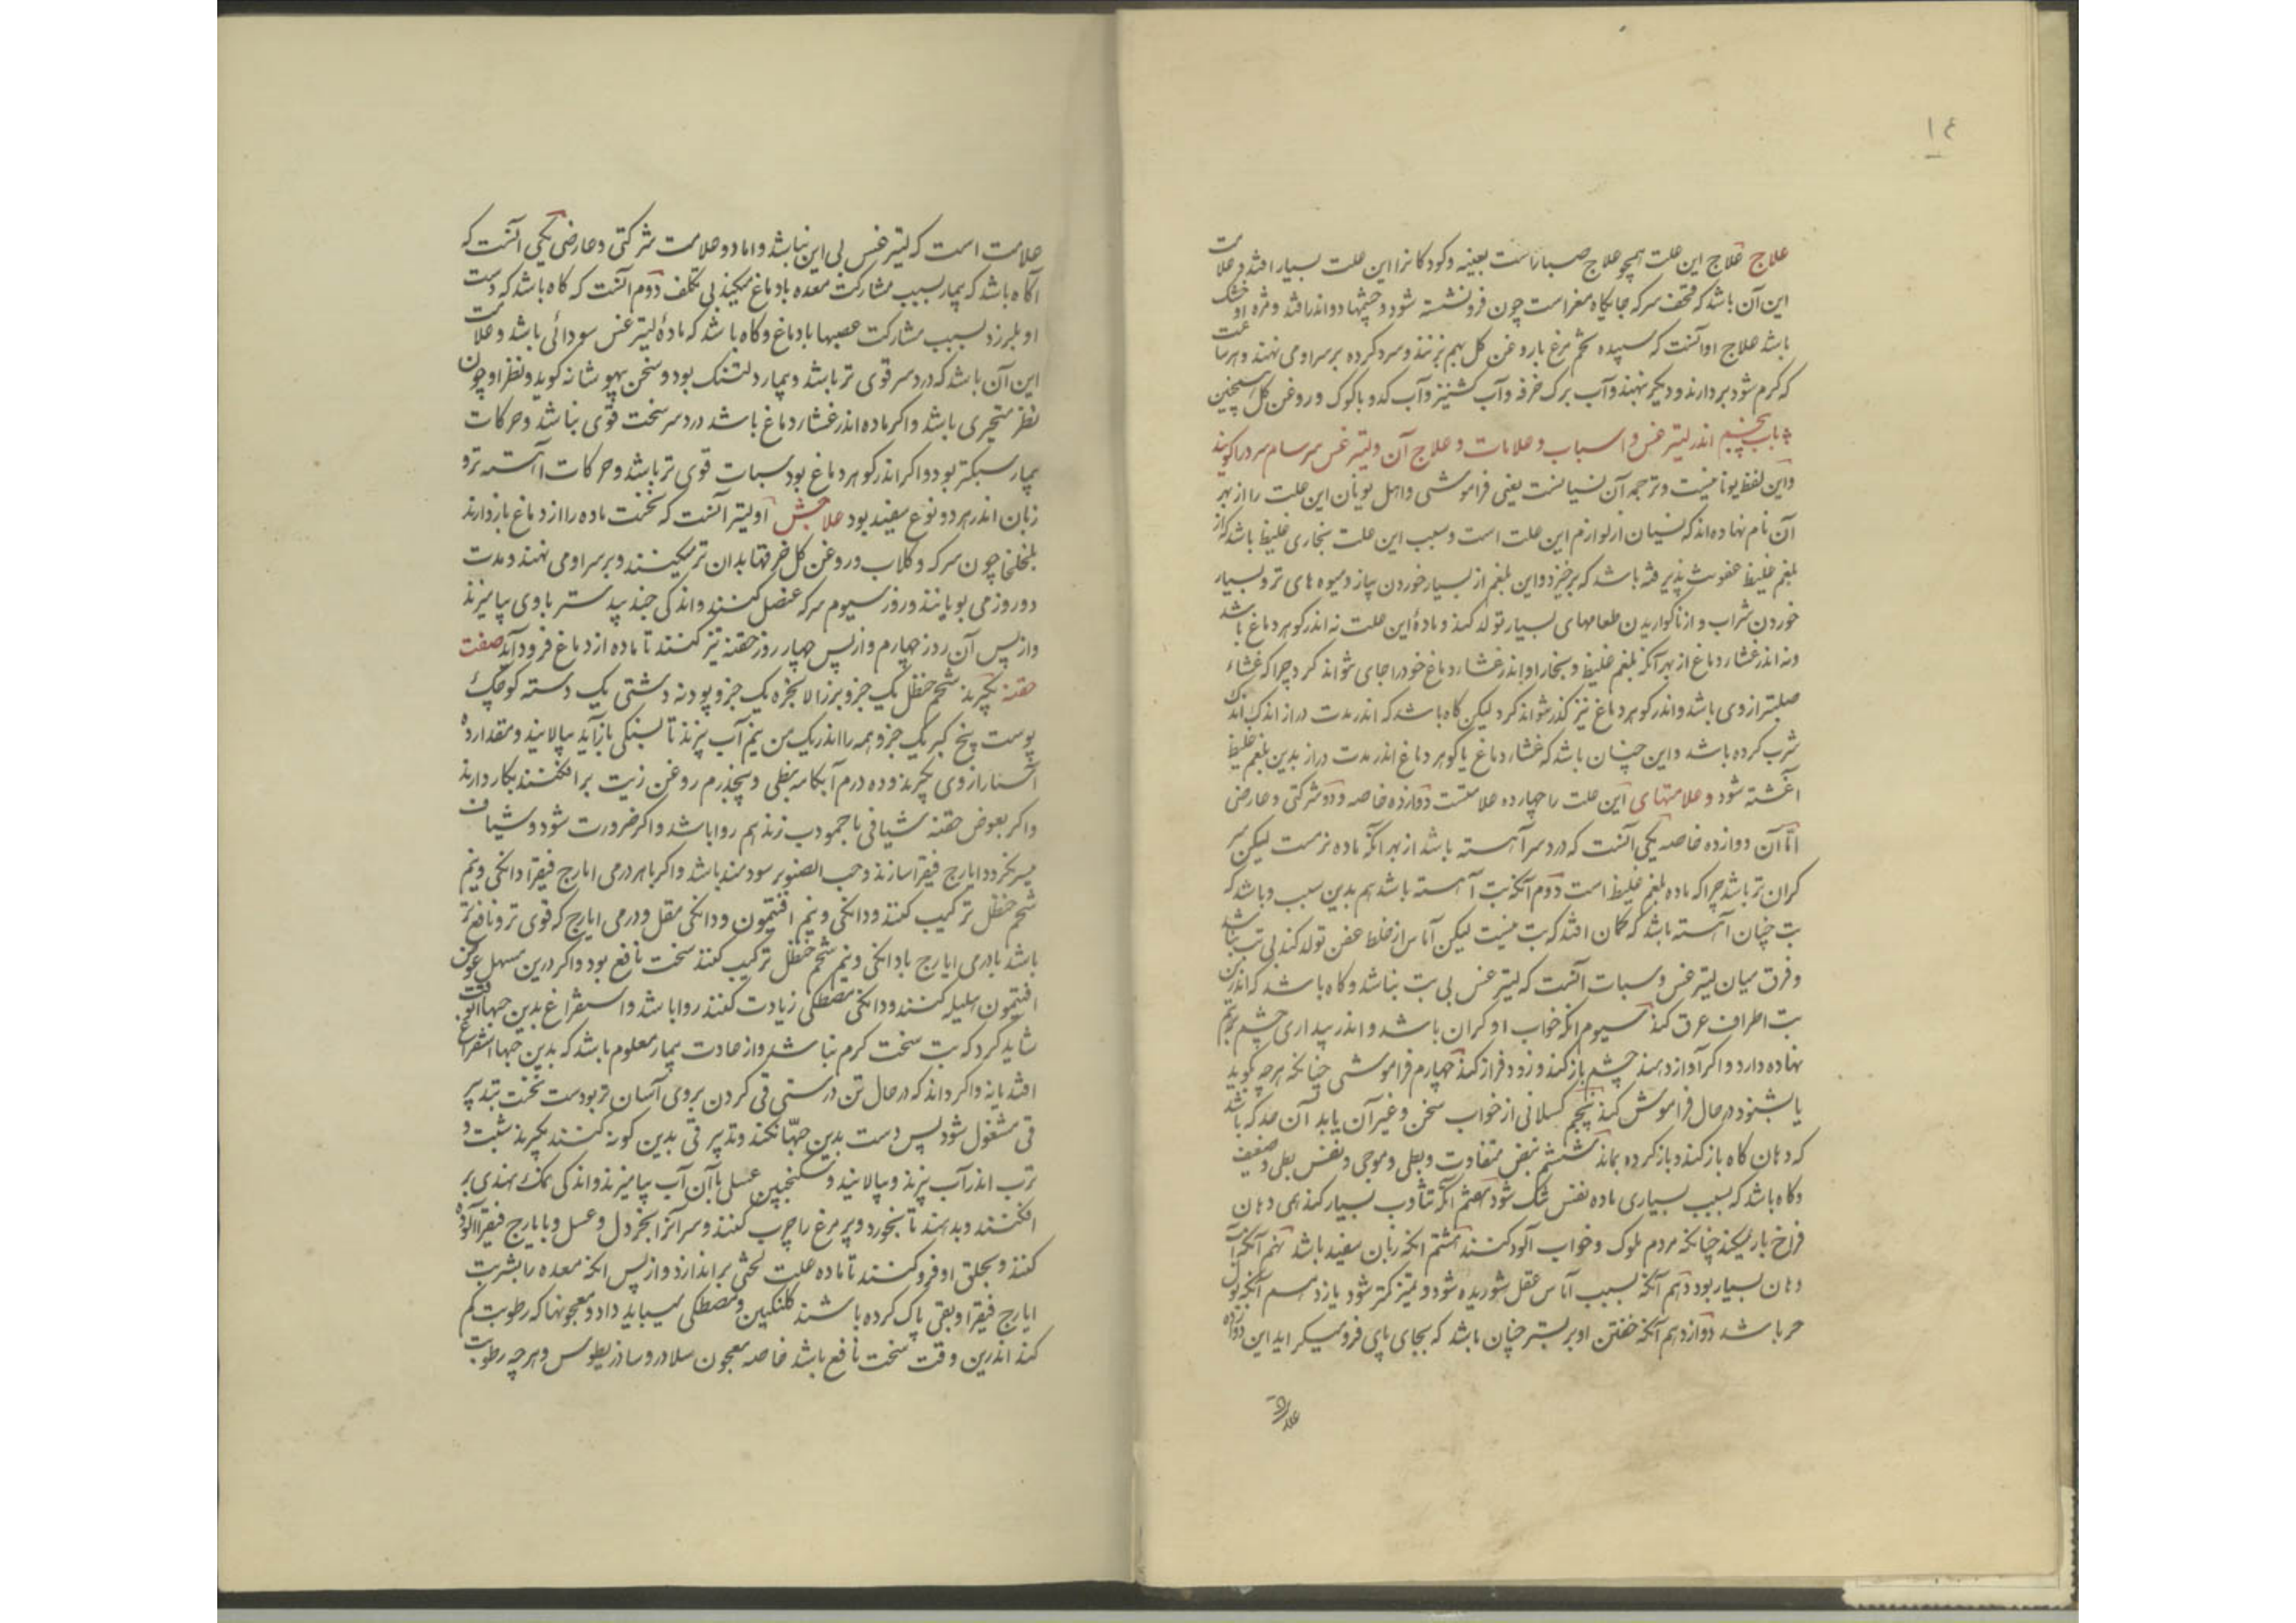 ١٤
علاج علاج این علت همچو علاج صباراست بعینه و کودکانرا این علت بسیار افتد و علامت
این آن باشد که قحف سر که جایکاه مغز است چون فرو نشسته شود و چشمها دواندر افتد و مژه او خشک
باشد علاج او آنست که سپیده تخم مرغ با روغن کل بهم بزنند و سرد کرده بر سر او می نهند و هر ساعت
که کرم شود بردارند و دیکر بنهند و آب برک خرفه و آب کشنیز و آب کدو با کوک و روغن کل همچنین
باب پنجم اندر لیترغس و اسباب و علامات و علاج آن و لیترغس سرسام سرد را کویند
و این لفظ یونانیست و ترجمه آن نسیانست یعنی فراموشی و اهل یونان این علت را از بهر
آن نام نهاده اند که نسیان از لوازم این علت است و سبب این علت بخاری غلیظ باشد که از
بلغم غلیظ عفونت پذیرفته باشد که برخیزد و این بلغم از بسیار خوردن پیاز و میوه های تر و بسیار
خوردن شراب و از ناکواریدن طعامهای بسیار تولد کند و مادۀ این علت نه اندر کوهر دماغ باشد
ونه اندر غشاء دماغ از بهر آنکه بلغم غلیظ و بخار او اندر غشاء دماغ خود را جای نتواند کرد چرا که غشاء
صلبتر از وی باشد و اندر کوهر دماغ نیز کذر نتواند کرد لیکن کاه باشد که اندر مدت دراز اندک اندک
شرب کرده باشد و این چنان باشد که غشاء دماغ یا کوهر دماغ اندر مدت دراز بدین بلغم غلیظ
آغشته شود و علامتهای این علت را چهارده علامتست دوازده خاصه و دو شرکتی و عارضی
امّا آن دوازده خاصه یکی آنست که درد سر آهسته باشد از بهر آنکه ماده نرمست لیکن سر
کران تر باشد چرا که ماده بلغم غلیظ است دوم آنکه تب آهسته باشد هم بدین سبب و باشد که
تب چنان آهسته باشد که کمان افتد که تب نیست لیکن آماس از خلط عفن تولد کند بی تب نباشد
و فرق میان لیترغس و سبات آنست که لیترغس بی تب نباشد و کاه باشد که اندرین
تب اطراف عرق کند سیوم انکه خواب او کران باشد و اندر بیداری چشم برهم
نهاده دارد و اکر آواز دهند چشم باز کند و زود فراز کند چهارم فراموشی چنانکه هرچه کوید
یا بشنود در حال فراموش کند پنجم کسلانی از خواب سخن و غیر آن یابد آن حد که باشد
که دهان کاه باز کند و باز کرده بماند ششم نبض متفاوت و بطی و موجی و نفس بطی و ضعیف
و کاه باشد که بسبب بسیاری ماده نفس تنک شود هفتم آنکه تثاوب بسیار کند همی دهان
فراخ باز میکند چنانکه مردم ملوک و خواب آلود کنند هشتم انکه زبان سفید باشد نهم آنکه آب
دهان بسیار بود دهم آنکه بسبب آماس عقل شوریده شود و تمیز کمتر شود یازدهم آنکه بول
حر باشد دوازدهم آنکه خفتن او بر بستر چنان باشد که بجای پای فرو میکراید این دوازده
علامت است که لیترغس بی این نباشد و اما دو علامت شرکتی و عارضی یکی آنست که
آکاه باشد که بیمار بسبب مشارکت معده با دماغ میکند بی تکلف دوم آنست که کاه باشد که دست
او بلرزد بسبب مشارکت عصبها با دماغ و کاه باشد که مادۀ لیترغس سودائی باشد و علامت
این آن باشد که درد سر قوی تر باشد و بیمار دلتنک بود و سخن بیهوشانه کوید و نظر او چون
نظر متحیری باشد و اکر ماده اندر غشاء دماغ باشد درد سر سخت قوی نباشد و حرکات
بیمار سبکتر بود و اکر اندر کوهر دماغ بود سبات قوی تر باشد و حرکات آهسته تر و
زبان اندر هر دو نوع سفید بود علاجش اولیتر آنست که نخست ماده را از دماغ باز دارند
بلخلخا چون سرکه و کلاب و روغن کل خرقها بدان تر میکنند و بر سر او می نهند و مدت
دو روز می بویانند و روز سیوم سرکه عنصل کنند و اندکی جند بیدستر با وی بیامیزند
و از پس آن روز چهارم و از پس چهار روز حقنه تیز کنند تا ماده از دماغ فرود آید صفت
حقنه بکیرند شحم حنظل یک جزو بزر الانجره یک جزو پودنه دشتی یک دسته کوچک
پوست بیخ کبر یک جزو همه را اندر یک من نیم آب بپزند تا بسنکی باز آید بپالایند و مقدار ده
استار از وی بکیرند و ده درم آبکامه نبطی و پنجدرم روغن زیت بر افکنند بکار دارند
و اکر بعوض حقنه شیافی با جمودب زند هم روا باشد و اکر ضرورت شود و شیاف
میسر نکردد ایارج فیقرا سازند و حب الصنوبر سودمند باشد و اکر با هر درمی ایارج فیقرا دانکی و نیم
شحم حنظل ترکیب کنند و دانکی و نیم افتیمون و دانکی مقل و درمی ایارج که قوی تر و نافع تر
باشد با درمی ایارج با دانکی و نیم شحم حنظل ترکیب کنند سخت نافع بود و اکر درین مسهل عوض
افتیمون هلیله کنند و دانکی مصطکی زیادت کنند روا باشد و استفراغ بدین جهها آنوقت
شاید کرد که تب سخت کرم نباشد و از عادت بیمار معلوم باشد که بدین جهها استفراغ
افتد یا نه و اکر داند که در حال تن درستی قی کردن بر وی آسان تر بودست نخست بتدبیر
قی مشغول شود پس دست بدین حبّها نکند و تدبیر قی بدین کونه کنند بکیرند شبت و
ترب اندر آب بپزند و بپالایند و سکنجبین عسلی با آن آب بیامیزند و اندکی نمک هندی بر
افکنند و بدهند تا بخورد و پر مرغ را چرب کنند و سر آنرا بخردل و عسل و بایارج فیقرا آلوده
کنند و بحلق او فرو کنند تا ماده علت لختی بر اندازد و از پس انکه معده را بشربت
ایارج فیقرا و بقی پاک کرده باشند کلنکبین و مصطکی میباید داد و معجونها که رطوبت کم
کند اندرین وقت سخت نافع باشد خاصه معجون بلادر و ساذریطوس و هرچه رطوبت